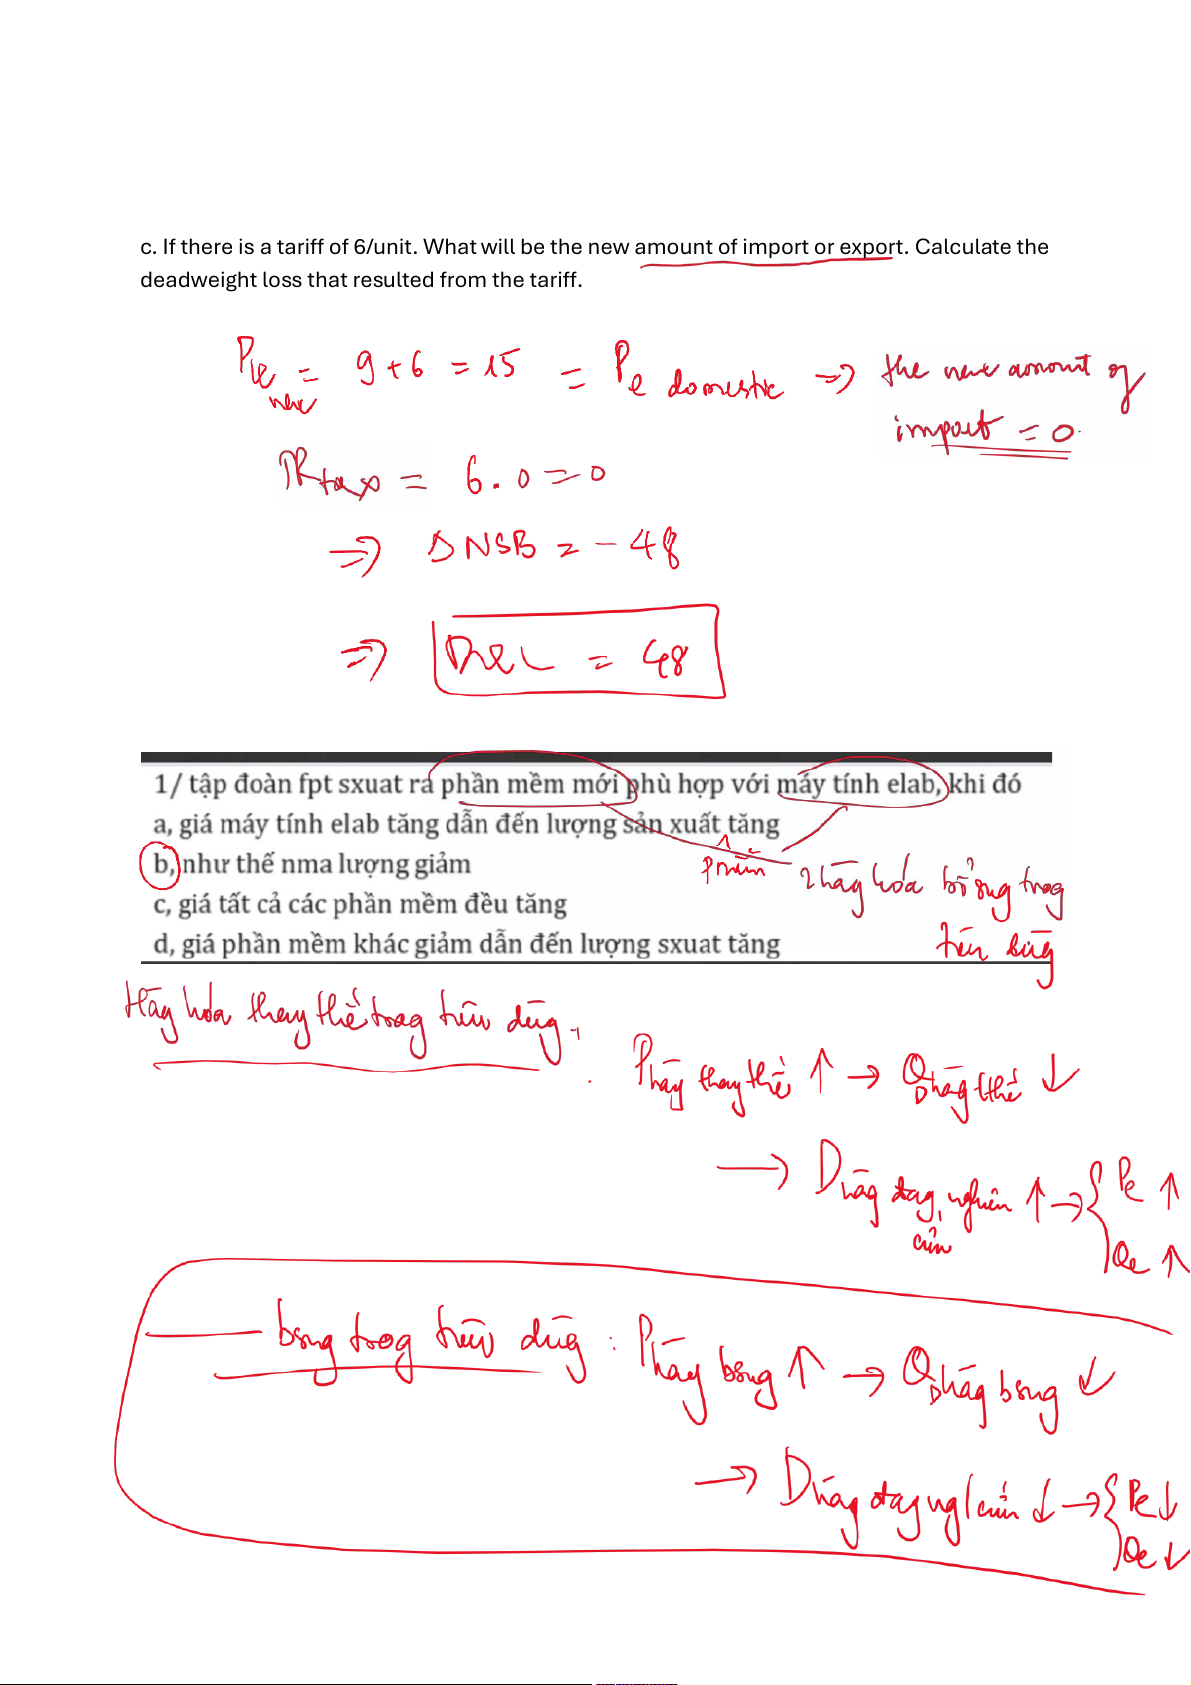 c. If there is a tariff of 6/unit. What will be the new amount of import or export. Calculate the
deadweight loss that resulted from the tariff.
new = 9 + 6 = 15 = Pe domestic => the new amount of
import = 0
TRtax = 6.0 = 0
=> ΔNSB = -48
=> = 48
1/ tập đoàn fpt sxuat ra phần mềm mới phù hợp với máy tính elab, khi đó
a, giá máy tính elab tăng dẫn đến lượng sản xuất tăng
b, như thế nma lượng giảm
c, giá tất cả các phần mềm đều tăng
d, giá phần mềm khác giảm dẫn đến lượng sxuat tăng
2 hàg hóa bổ sug trog
tiêu dùg
Hàg hóa thay thế trog tiêu dùg.
P hàg thay thế ↑ → QD hàg tthế ↓
→ D hàg đag nghiên cứu ↑ → { Pe ↑
Qe ↑
bsug trog tiêu dùg : P hàg bsug ↑ → QD hàg bsug ↓
→ D hàg đag ng/cứu ↓ → { Pe ↓
Qe ↓